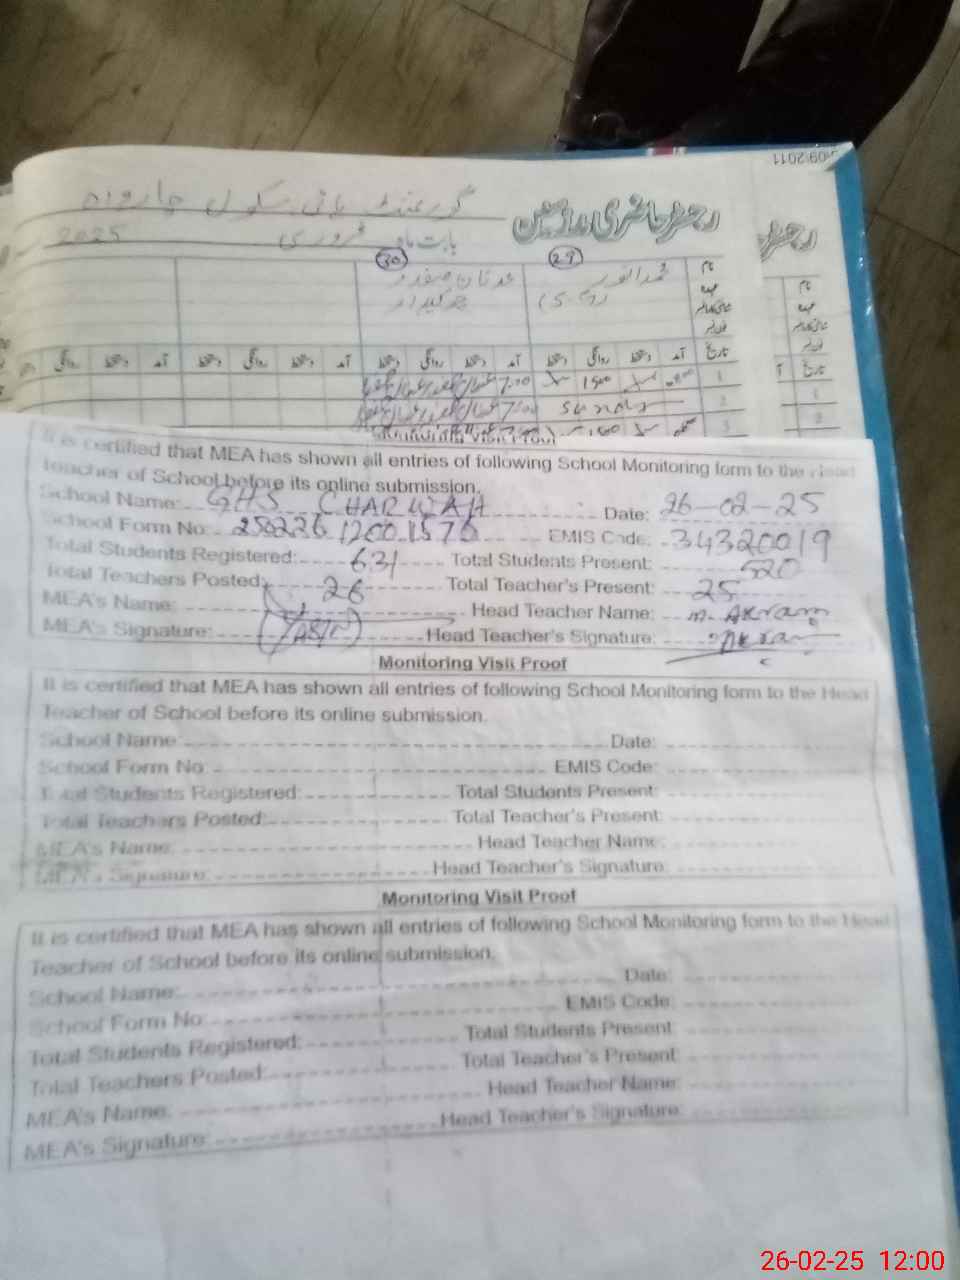 09/2011
گورنمنٹ ہائی سکول چارواہ
رجسٹر حاضری ملازمین
بابت ماہ فروری 2025
30 29
محمد انور
عدنان صفدر
چوکیدار
نام
عہدہ
تاریخ آمد دستخط روانگی دستخط آمد دستخط روانگی دستخط آمد دستخط روانگی دستخط آمد دستخط روانگی
1 1500 7:00
2 Sunday 7:00
3
Monitoring Visit Proof
It is certified that MEA has shown all entries of following School Monitoring form to the Head
Teacher of School before its online submission.
School Name: GHS CHARWAH Date: 26-02-25
School Form No: 250226 1200 1570 EMIS Code: 34320019
Total Students Registered: 631 Total Students Present: 520
Total Teachers Posted: 26 Total Teacher's Present: 25
MEA's Name: Head Teacher Name: M. Akram
MEA's Signature: Head Teacher's Signature: Akram
Monitoring Visit Proof
It is certified that MEA has shown all entries of following School Monitoring form to the Head
Teacher of School before its online submission.
School Name: Date:
School Form No: EMIS Code:
Total Students Registered: Total Students Present:
Total Teachers Posted: Total Teacher's Present:
MEA's Name: Head Teacher Name:
MEA's Signature: Head Teacher's Signature:
Monitoring Visit Proof
It is certified that MEA has shown all entries of following School Monitoring form to the Head
Teacher of School before its online submission.
School Name: Date:
School Form No: EMIS Code:
Total Students Registered: Total Students Present:
Total Teachers Posted: Total Teacher's Present:
MEA's Name: Head Teacher Name:
MEA's Signature: Head Teacher's Signature:
26-02-25 12:00